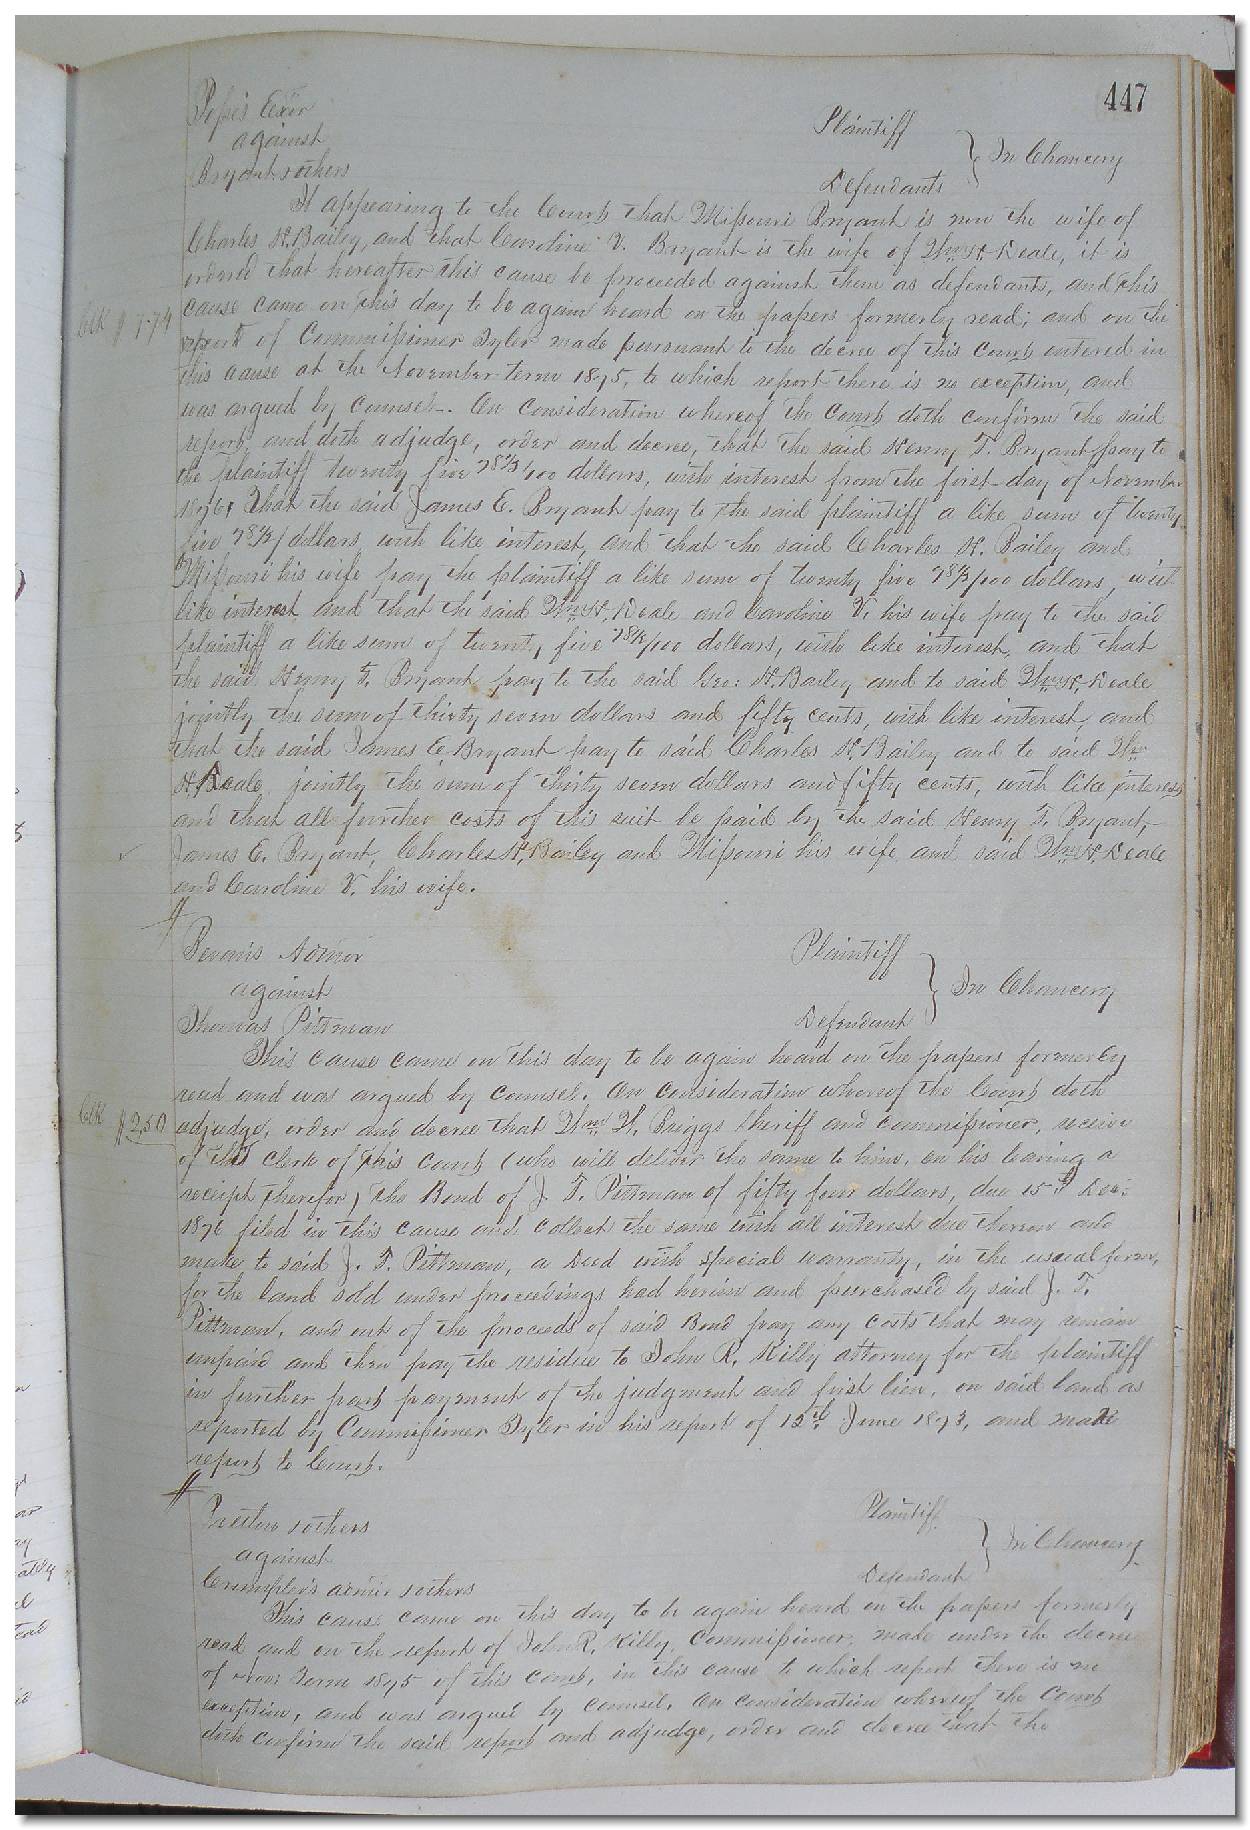 447
Pope's Exor Plaintiff
against In Chancery
Bryant & others Defendants
It appearing to the Court that Missouri Bryant is now the wife of
Charles H. Bailey, and that Caroline V. Bryant is the wife of Wm H. Deale, it is
ordered that hereafter this cause be proceeded against them as defendants, and this
cause came on this day to be again heard on the papers formerly read; and on the
Clk $7.74
report of Commissioner Tyler made pursuant to the decree of this Court entered in
this cause at the November term 1875, to which report there is no exception, and
was argued by counsel. On Consideration whereof the Court doth confirm the said
report, and doth adjudge, order and decree, that the said Henry T. Bryant pay to
the plaintiff twenty five 78 1/2/100 dollars, with interest from the first day of November
1876; That the said James E. Bryant pay to the said plaintiff a like sum of twenty
five 78 1/2/ dollars with like interest, and that the said Charles H. Bailey and
Missouri his wife pay the plaintiff a like sum of twenty five 78 1/2/100 dollars, with
like interest, and that the said Wm H. Deale and Caroline V. his wife pay to the said
plaintiff a like sum of twenty five 78 1/2/100 dollars, with like interest, and that
the said Henry T. Bryant pay to the said Geo: H. Bailey and to said Wm H. Deale
jointly the sum of thirty seven dollars and fifty cents, with like interest, and
that the said James E. Bryant pay to said Charles H. Bailey and to said Wm
H. Deale, jointly the sum of thirty seven dollars and fifty cents, with like interest
and that all further costs of this suit be paid by the said Henry T. Bryant,
James E. Bryant, Charles H. Bailey and Missouri his wife and said Wm H. Deale
and Caroline V. his wife.
Plaintiff
against In Chancery
Thomas Pittman Defendant
This cause came on this day to be again heard on the papers formerly
read and was argued by counsel. On Consideration whereof the Court doth
Clk $2.50
adjudge, order and decree that Wm W. Briggs Sheriff and Commissioner, receive
of the clerk of this Court (who will deliver the same to him, on his leaving a
receipt therefor) the Bond of J. T. Pittman of fifty four dollars, due 15th Dec:
1876 filed in this cause and collect the same with all interest due thereon and
make to said J. T. Pittman, a Deed with special warranty, in the usual form,
for the land sold under proceedings had herein and purchased by said J. T.
Pittman, and out of the proceeds of said Bond pay any costs that may remain
unpaid and then pay the residue to John R. Kilby attorney for the plaintiff
in further part payment of the judgment and first lien, on said land as
reported by Commissioner Tyler in his report of 12th June 1873, and make
report to Court.
Pretlow & others Plaintiff
against In Chancery
Crumpler's admr & others Defendant
This cause came on this day to be again heard on the papers formerly
read and on the report of John R. Kilby, Commissioner, made under the decree
of Nov: Term 1875 of this Court, in this cause to which report there is no
exception, and was argued by Counsel. On Consideration whereof the Court
doth confirm the said report and adjudge, order and decree that the